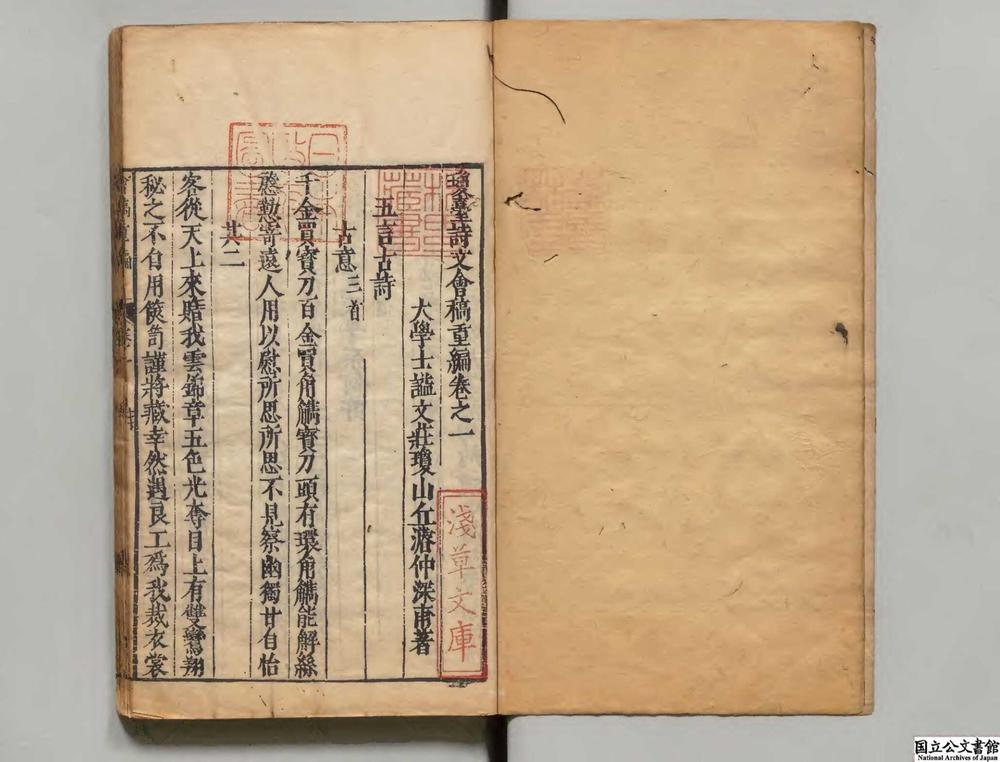 瓊臺詩文會稿重編卷之一
大學士謚文莊瓊山丘濬仲深甫著
五言古詩
古意三首
千金買寶刀百金買角觿寶刀頭有環角觿能解絲
慇懃寄遠人用以慰所思所思不見察幽獨甘自怡
其二
客從天上來賂我雲錦章五色光奪目上有雙鸞翔
秘之不自用篋笥謹將藏幸然遇良工爲我裁衣裳
淺草文庫
国立公文書館
National Archives of Japan